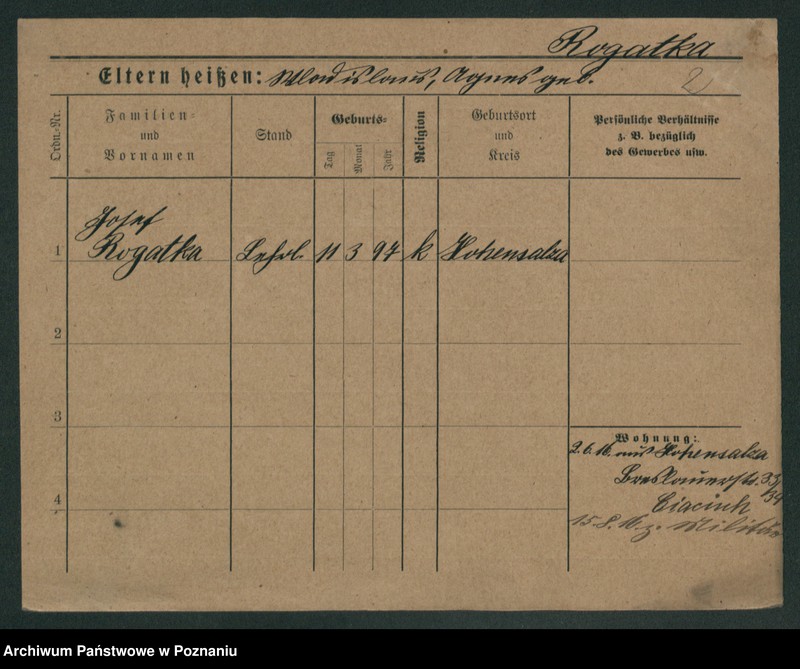 Rogatka
Eltern heißen: Wladislaus, Agnes geb.
2
Ordn.-Nr.
Familien- und Vornamen
Stand
Geburts-
Tag
Monat
Jahr
Religion
Geburtsort und Kreis
Persönliche Verhältnisse
z. B. bezüglich
des Gewerbes usw.
Josef
1 Rogatka Lehrl. 11 3 97 k Hohensalza
2
3
Wohnung:
2.6.16. aus Hohensalza
Breslauerstr. 33/34
4
15.8.16. z. Militär
Archiwum Państwowe w Poznaniu